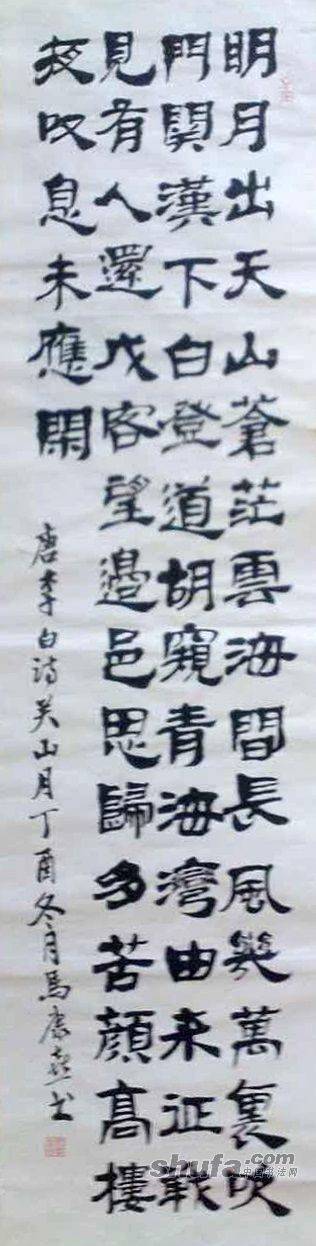 明月出天山蒼茫雲海間長風幾萬裏吹
門関漢下白登道胡窺青海灣由来征戰
見有人還戍客望邊邑思歸多苦顏高樓
夜叹息未應閑
唐李白诗关山月丁酉冬月馬书
shufa.com
中国书法网